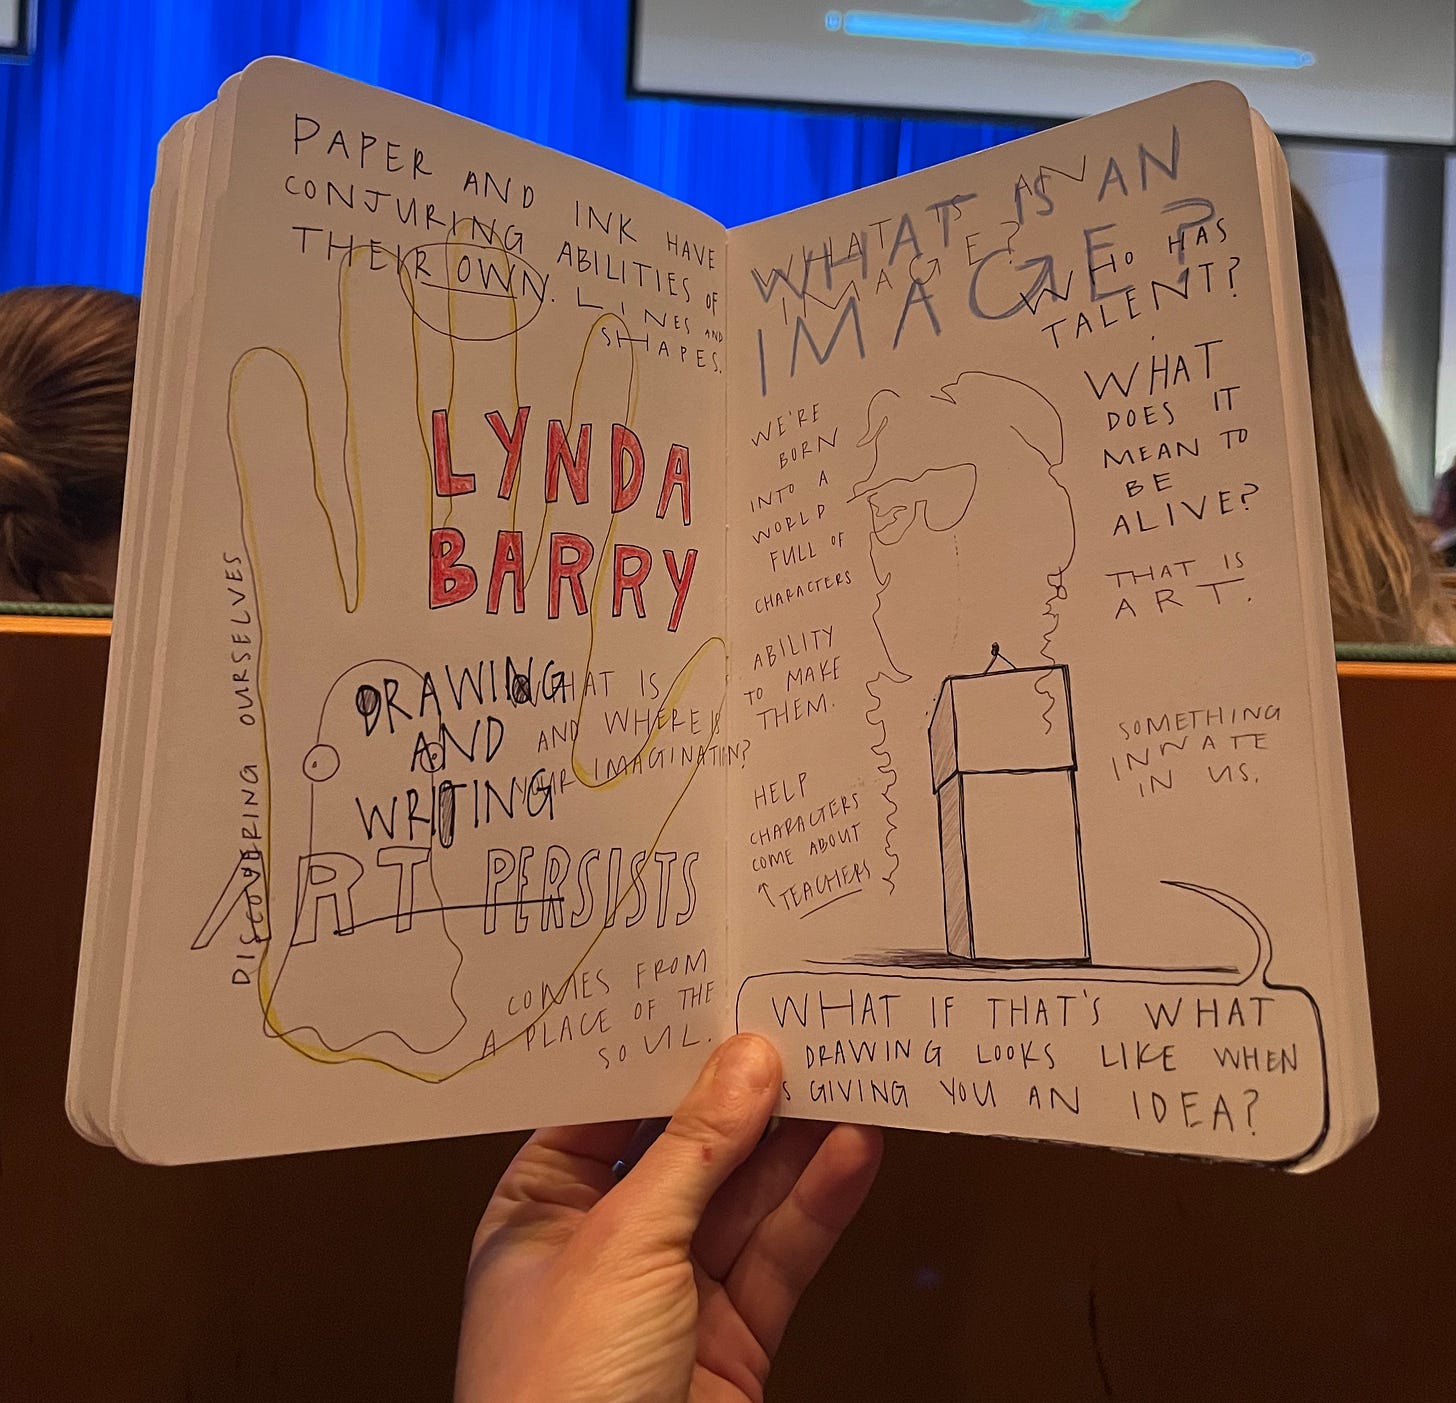 PAPER AND INK HAVE
CONJURING ABILITIES OF
THEIR OWN. LINES AND
SHAPES.
LYNDA
BARRY
DISCOVERING OURSELVES
DRAWING
AND
WRITING
WHAT IS
AND WHERE IS
YOUR IMAGINATION?
ART PERSISTS
COMES FROM
A PLACE OF THE
SOUL.
WHAT IS AN
IMAGE?
WHAT IS AN
IMAGE?
WHO HAS
TALENT?
WHAT
DOES IT
MEAN TO
BE
ALIVE?
THAT IS
ART.
WE'RE
BORN
INTO A
WORLD
FULL OF
CHARACTERS
ABILITY
TO MAKE
THEM.
HELP
CHARACTERS
COME ABOUT
↑ TEACHERS
SOMETHING
INNATE
IN US.
WHAT IF THAT'S WHAT
DRAWING LOOKS LIKE WHEN
GIVING YOU AN IDEA?